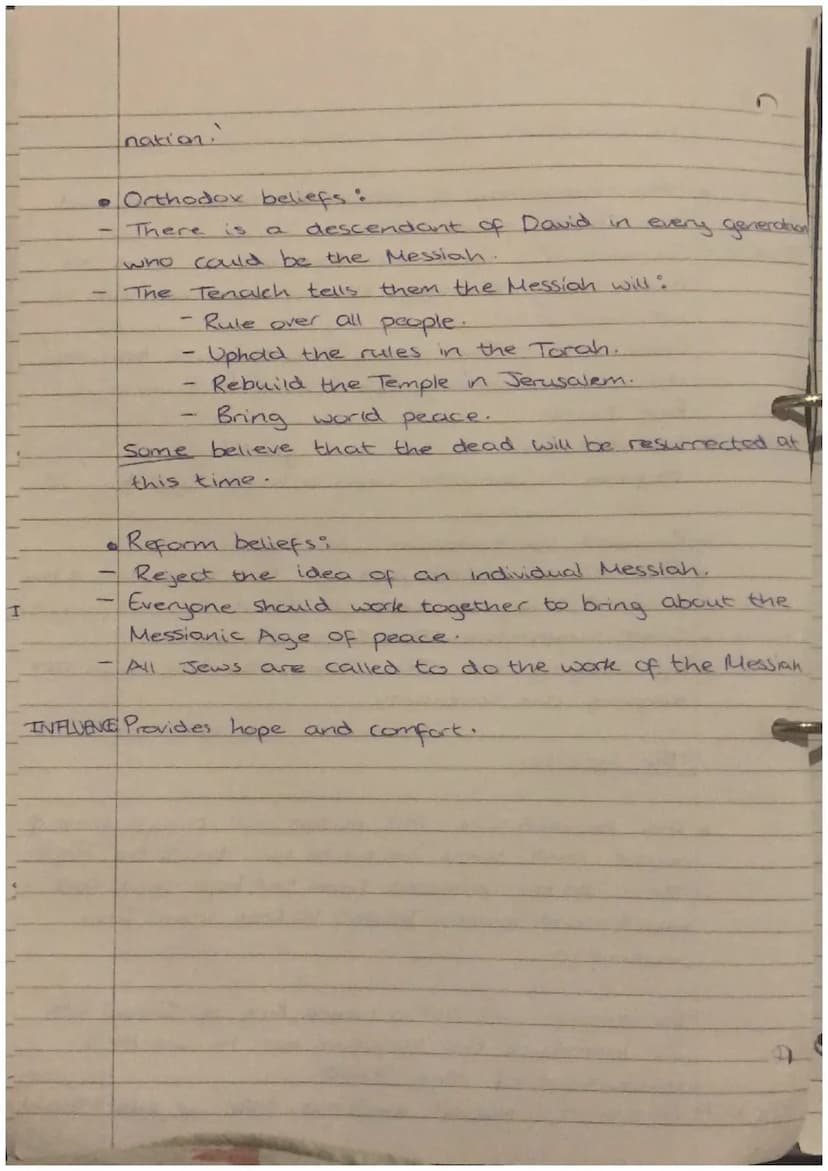 nation.'
• Orthodox beliefs:
- There is a descendant of David in every generation
who could be the Messiah.
- The Tenakh tells them the Messiah will:
- Rule over all people.
- Uphold the rules in the Torah.
- Rebuild the Temple in Jerusalem.
- Bring world peace.
Some believe that the dead will be resurrected at
this time.
• Reform beliefs:
- Reject the idea of an individual Messiah.
- Everyone should work together to bring about the
Messianic Age of peace.
- All Jews are called to do the work of the Messiah
INFLUENCE Provides hope and comfort.